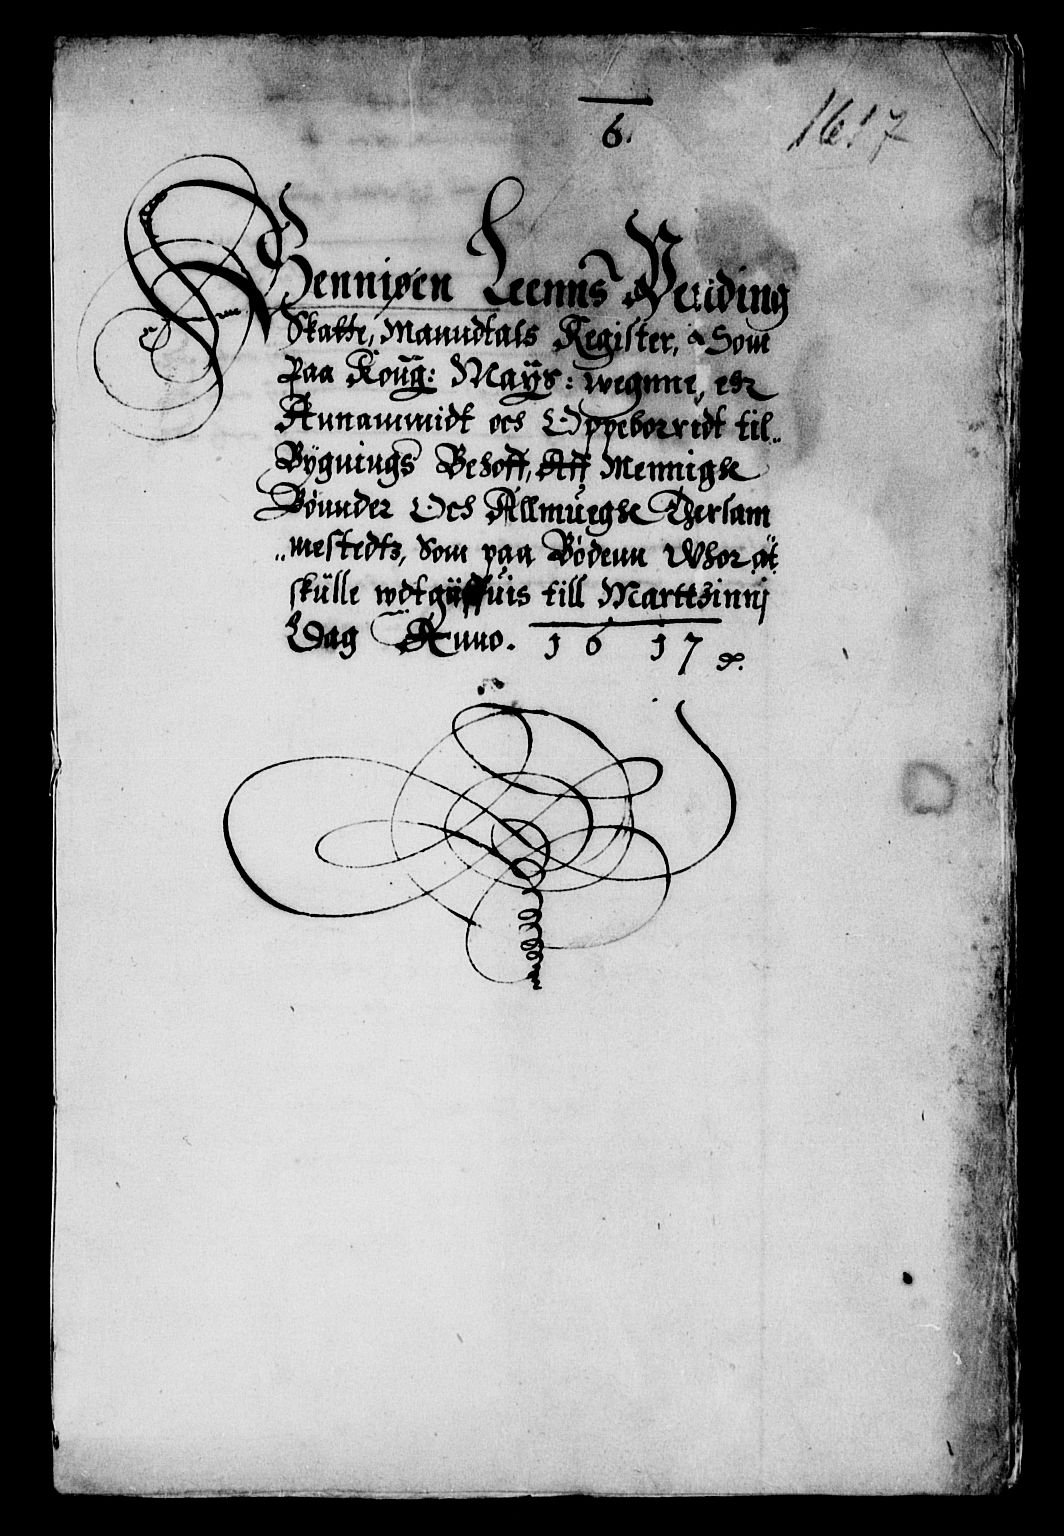 6.
1617
Hennisøen Leenns Pending
Skatte, Manudtals Register, Som
Paa Koüg: Mayß: wegnne, ehr
Annammidt och Oppeborredt til„
Bÿgnings Behoff, Aff Mennighe
Bønnder Och Allmüeghe Thersam
„mestedtz, Som paa Bodenn Whor at
skülle wdtgüffuis till Marttzinnj
Dag Anno. 1617